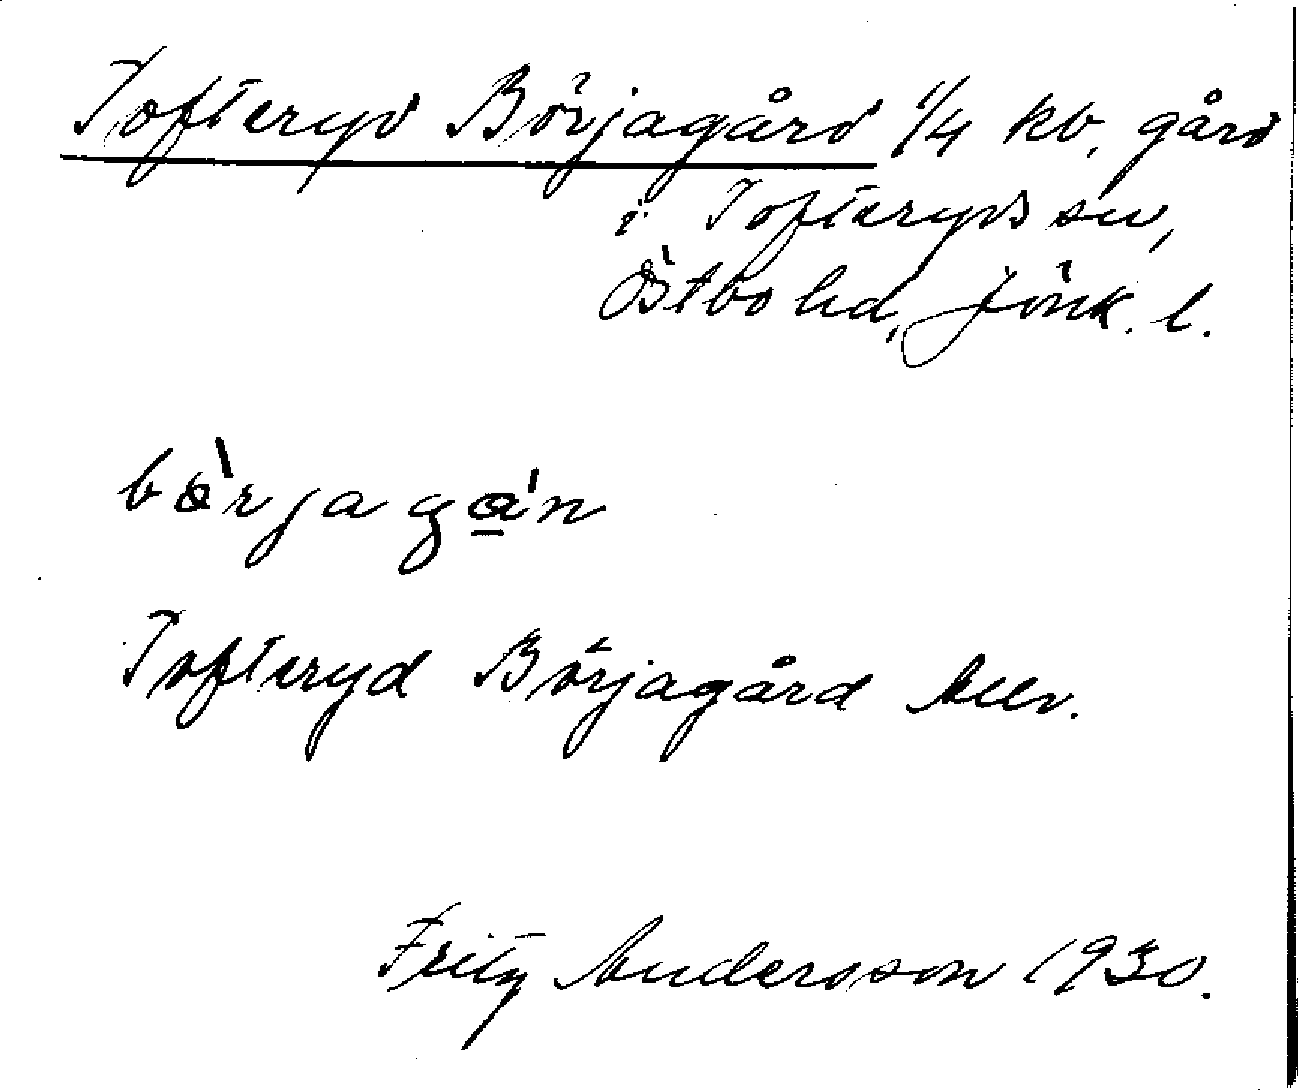 Tofteryd Börjagård 1/4 kb. gård
i Tofteryds sn,
Östbo hd, Jönk. l.
bɵ̀rjagɑ́n
Tofteryd Börjagård
Fritz Andersson 1930.